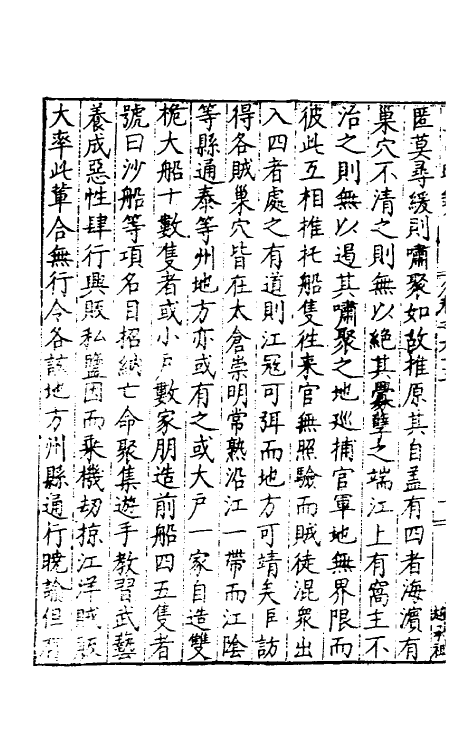 匿莫尋緩則嘯聚如故推原其自盖有四者海濱有
巢穴不清之則無以絕其釁孽之端江上有窩主不
治之則無以遏其嘯聚之地巡捕官軍地無界限而
彼此互相推托船隻往來官無照驗而賊徒混衆出
入四者處之有道則江寇可弭而地方可靖矣臣訪
得各賊巢穴皆在太倉崇明常熟沿江一帶而江陰
等縣通泰等州地方亦或有之或大戶一家自造雙
桅大船十數隻者或小戶數家朋造前船四五隻者
號曰沙船等項名目招納亡命聚集遊手教習武藝
養成惡性肆行興販私鹽因而乘機劫掠江洋賊
大率此輩合無行令各該地方州縣通行曉諭但